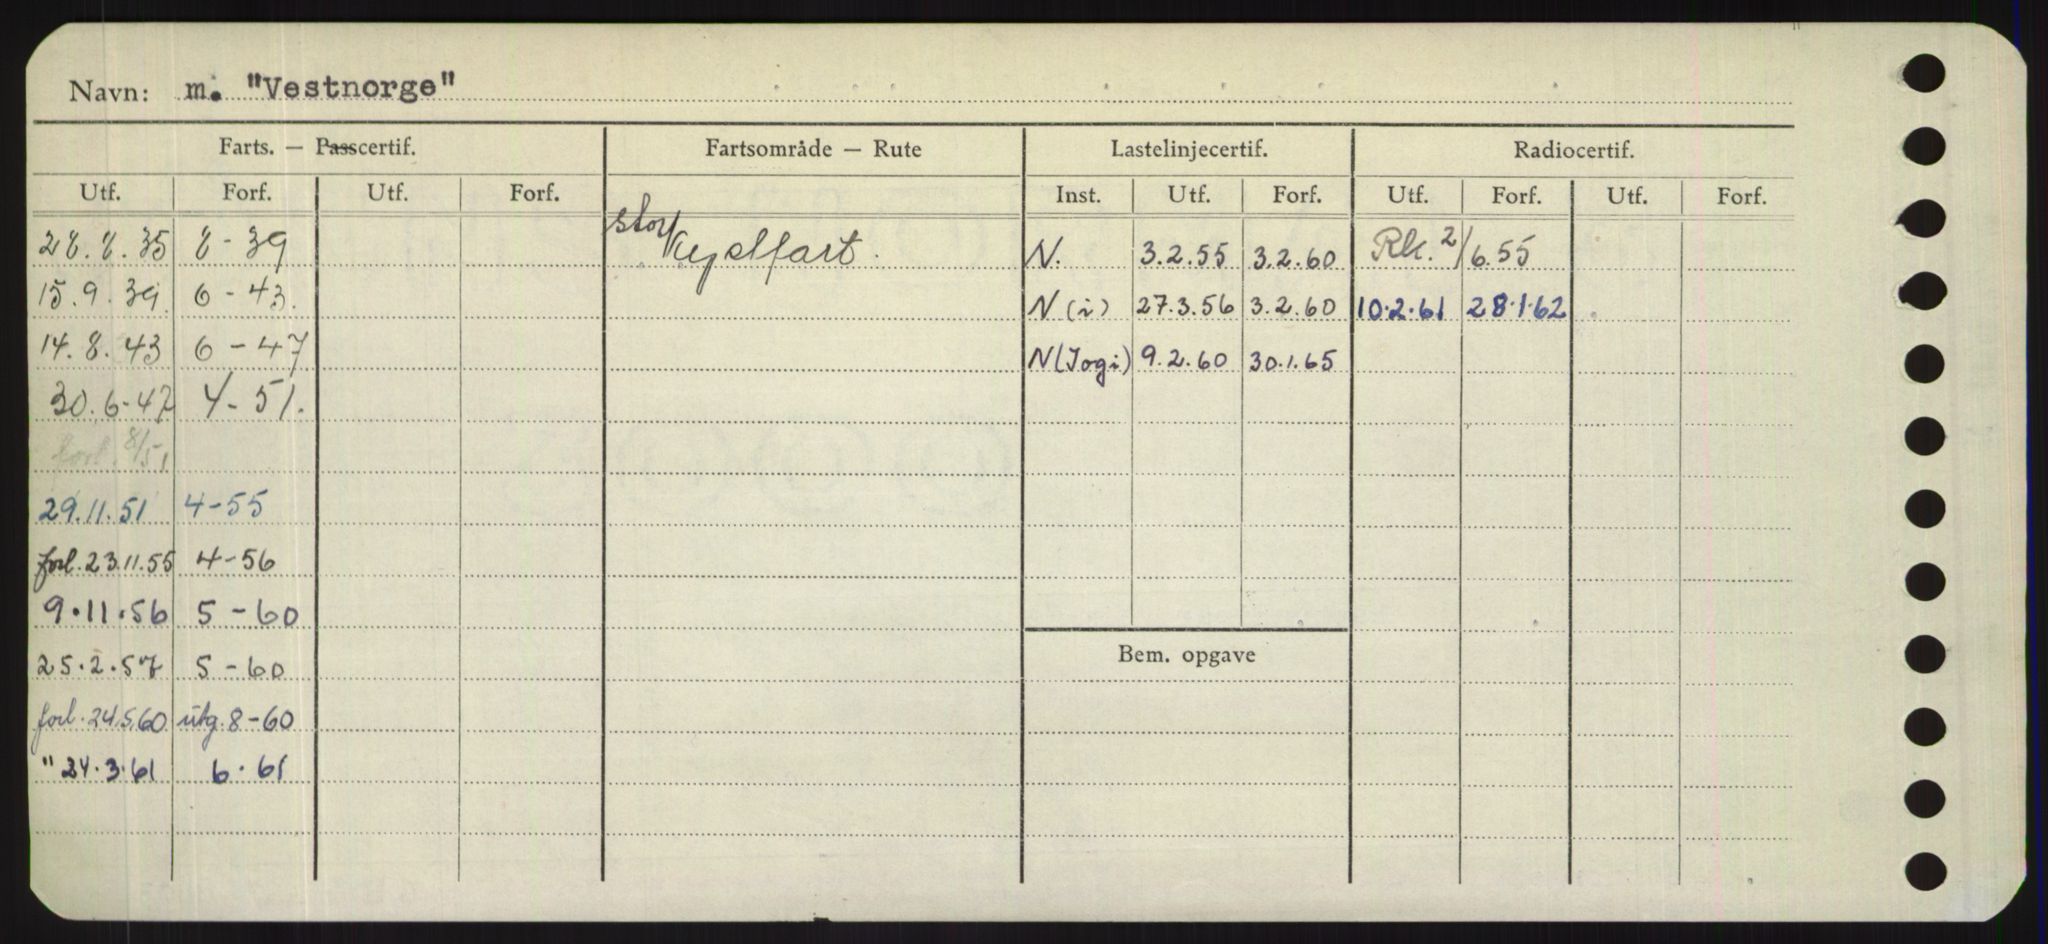 Navn: m. "Vestnorge"
Farts. — Passcertif. Fartsområde — Rute Lastelinjecertif. Radiocertif.
Utf. Forf. Utf. Forf. Inst. Utf. Forf. Utf. Forf. Utf. Forf.
28.8.35 8-39 stor Kystfart. N. 3.2.55 3.2.60 Rk. 2/6.55
15.9.39. 6-43. N (i) 27.3.56 3.2.60 10.2.61 28.1.62
14.8.43 6-47 N (I og i) 9.2.60 30.1.65
30.6-47 4-51.
forl. 8/51
29.11.51 4-55
forl. 23.11.55 4-56
9.11.56 5-60
25.2.57 5-60 Bem. opgave
forl. 24.5.60 utg. 8-60
" 24.3.61 6.61